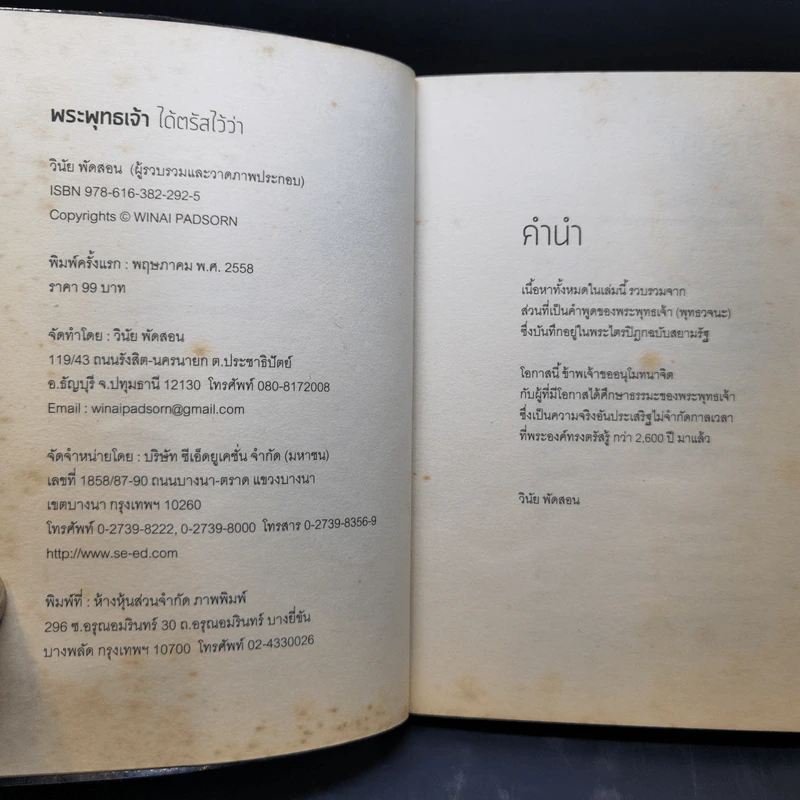 พระพุทธเจ้า ได้ตรัสไว้ว่า
วินัย พัดสอน (ผู้รวบรวมและวาดภาพประกอบ)
ISBN 978-616-382-292-5
Copyrights © WINAI PADSORN
พิมพ์ครั้งแรก : พฤษภาคม พ.ศ. 2558
ราคา 99 บาท
จัดทำโดย : วินัย พัดสอน
119/43 ถนนรังสิต-นครนายก ต.ประชาธิปัตย์
อ.ธัญบุรี จ.ปทุมธานี 12130 โทรศัพท์ 080-8172008
Email : winaipadsorn@gmail.com
จัดจำหน่ายโดย : บริษัท ซีเอ็ดยูเคชั่น จำกัด (มหาชน)
เลขที่ 1858/87-90 ถนนบางนา-ตราด แขวงบางนา
เขตบางนา กรุงเทพฯ 10260
โทรศัพท์ 0-2739-8222, 0-2739-8000 โทรสาร 0-2739-8356-9
http://www.se-ed.com
พิมพ์ที่ : ห้างหุ้นส่วนจำกัด ภาพพิมพ์
296 ซ.อรุณอมรินทร์ 30 ถ.อรุณอมรินทร์ บางยี่ขัน
บางพลัด กรุงเทพฯ 10700 โทรศัพท์ 02-4330026
คำนำ
เนื้อหาทั้งหมดในเล่มนี้ รวบรวมจาก
ส่วนที่เป็นคำพูดของพระพุทธเจ้า (พุทธวจนะ)
ซึ่งบันทึกอยู่ในพระไตรปิฎกฉบับสยามรัฐ
โอกาสนี้ ข้าพเจ้าขออนุโมทนาจิต
กับผู้ที่มีโอกาสได้ศึกษาธรรมะของพระพุทธเจ้า
ซึ่งเป็นความจริงอันประเสริฐไม่จำกัดกาลเวลา
ที่พระองค์ทรงตรัสรู้ กว่า 2,600 ปี มาแล้ว
วินัย พัดสอน